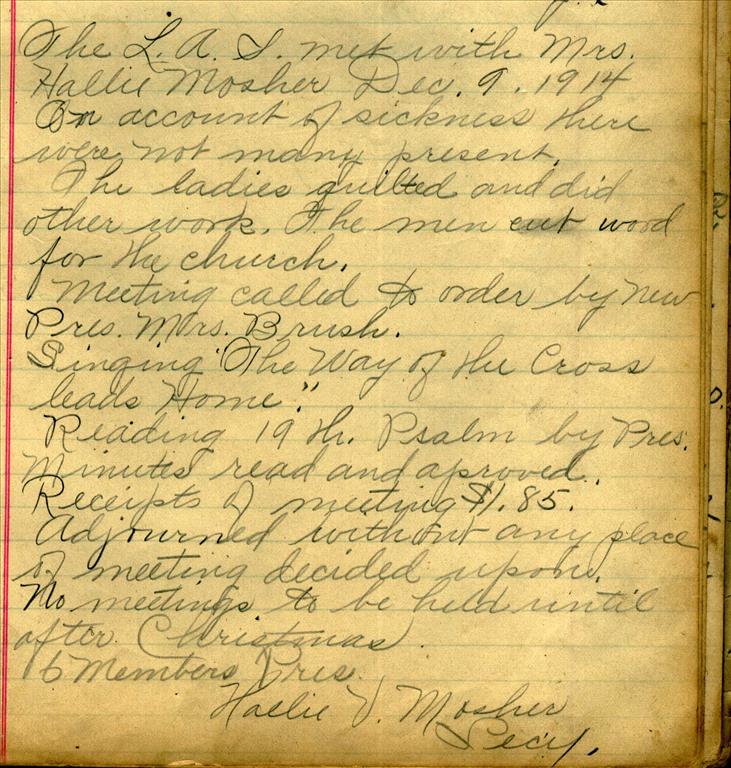 The L. A. S. met with Mrs.
Hallie Mosher Dec. 9. 1914
On account of sickness there
were not many present.
The ladies quilted and did
other work. The men cut wood
for the church.
Meeting called to order by new
Pres. Mrs. Brush.
Singing "The Way of the Cross
leads Home."
Reading 19 th. Psalm by Pres.
Minutes read and aproved.
Receipts of meeting $1.85.
Adjourned without any place
of meeting decided upon.
No meetings to be held until
after Christmas.
6 Members Pres.
Hallie V. Mosher
Secy.